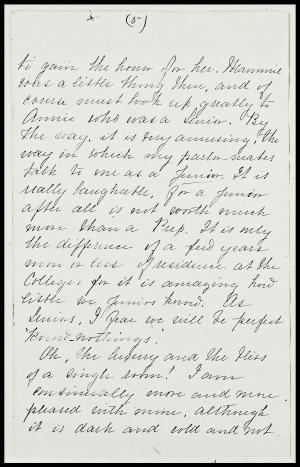 (5)
to gain the honor for her. Mammie
was a little thing then, and of
course must look up greatly to
Annie who was a Senior. By
the way, it is very amusing, the
way in which my parlor mates
talk to me as a Junior. It is
really laughable, for a Junior
after all is not worth much
more than a Prep. It is only
the difference of a few years
more or less of residence at the
College, for it is amazing how
little we Juniors know. As
Seniors, I fear we will be perfect
"know nothings".
Oh, the luxury and the bliss
of a single room! I am
continually more and more
pleased with mine, although
it is dark and cold and not